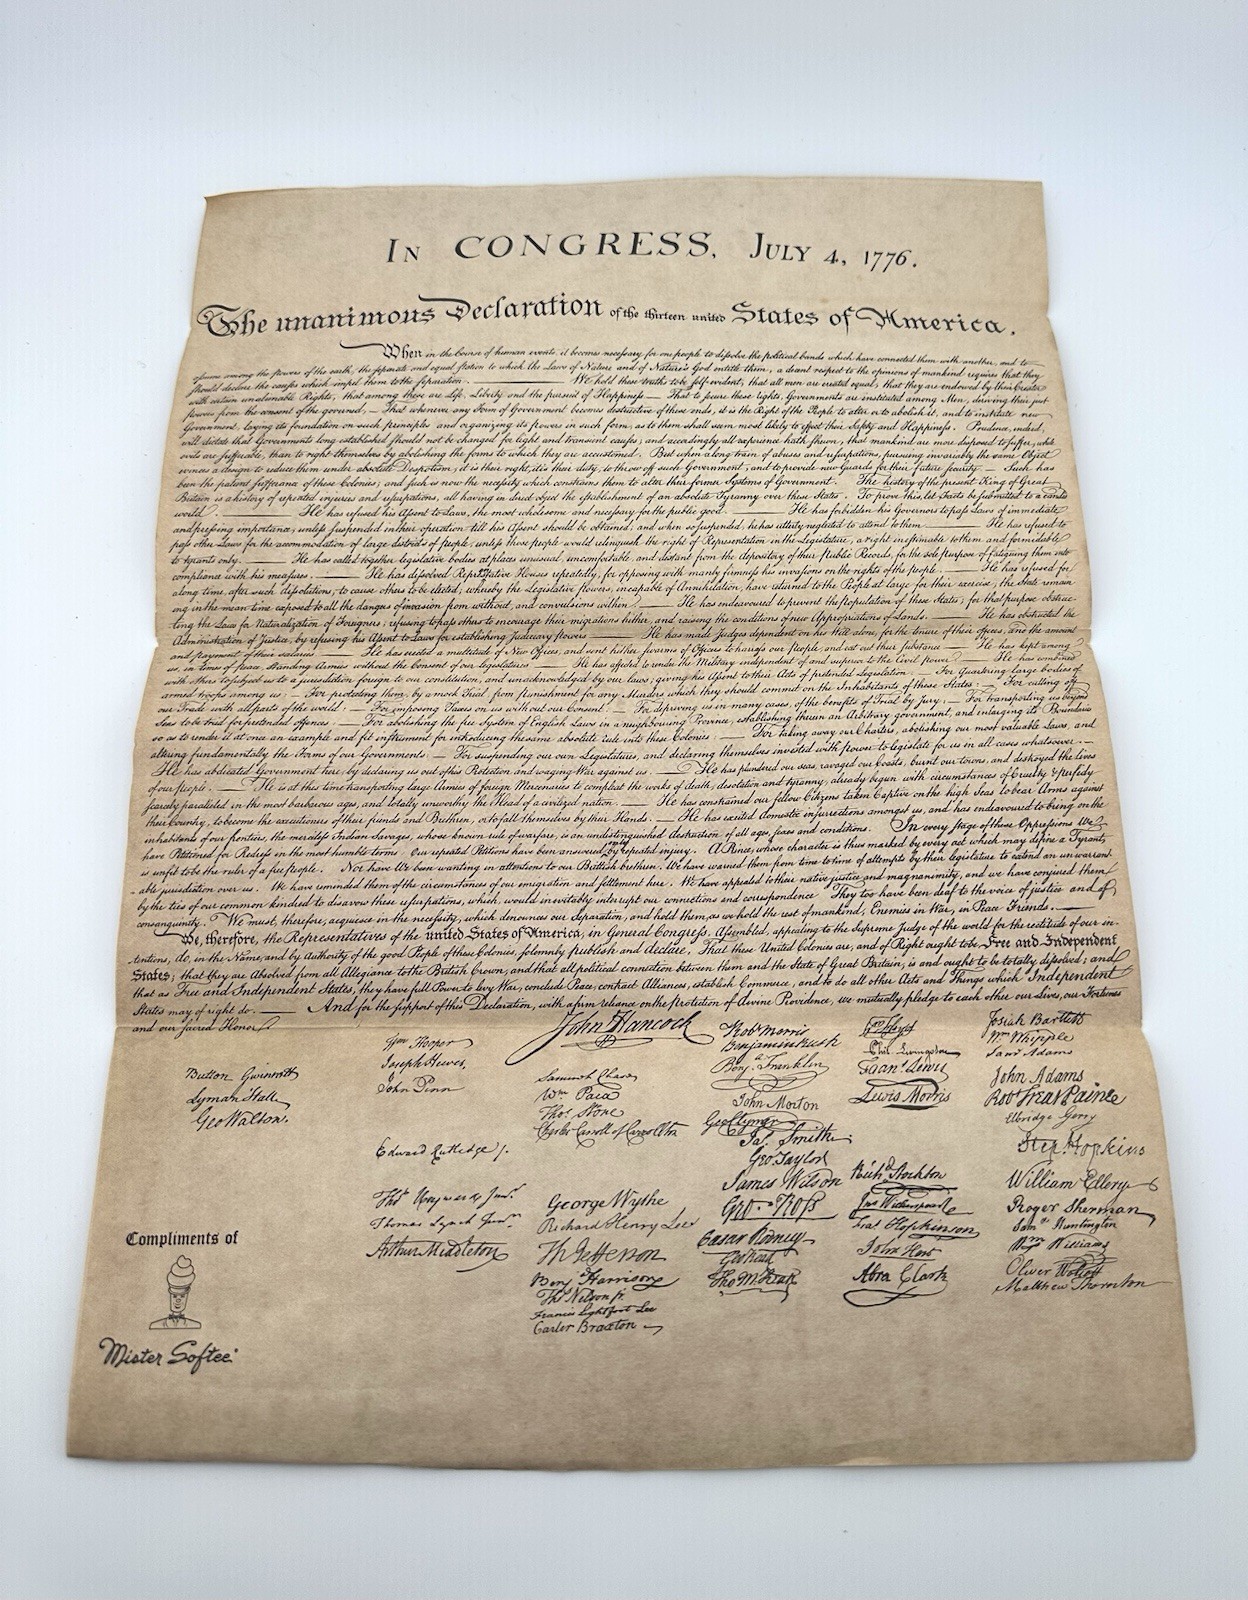 In CONGRESS, July 4, 1776.
The unanimous Declaration of the thirteen united States of America.
When in the Course of human events, it becomes necessary for one people to dissolve the political bands which have connected them with another, and to
assume among the powers of the earth, the separate and equal station to which the Laws of Nature and of Nature's God entitle them, a decent respect to the opinions of mankind requires that they
should declare the causes which impel them to the separation. — We hold these truths to be self-evident, that all men are created equal, that they are endowed by their Creator
with certain unalienable Rights, that among these are Life, Liberty and the pursuit of Happiness — That to secure these rights, Governments are instituted among Men, deriving their just
powers from the consent of the governed, — That whenever any Form of Government becomes destructive of these ends, it is the Right of the People to alter or to abolish it, and to institute new
Government, laying its foundation on such principles and organizing its powers in such form, as to them shall seem most likely to effect their Safety and Happiness. Prudence, indeed,
will dictate that Governments long established should not be changed for light and transient causes; and accordingly all experience hath shewn, that mankind are more disposed to suffer, while
evils are sufferable, than to right themselves by abolishing the forms to which they are accustomed. But when a long train of abuses and usurpations, pursuing invariably the same Object
evinces a design to reduce them under absolute Despotism, it is their right, it is their duty, to throw off such Government, and to provide new Guards for their future security. — Such has
been the patient sufferance of these Colonies; and such is now the necessity which constrains them to alter their former Systems of Government. The history of the present King of Great
Britain is a history of repeated injuries and usurpations, all having in direct object the establishment of an absolute Tyranny over these States. To prove this, let Facts be submitted to a candid
world. — He has refused his Assent to Laws, the most wholesome and necessary for the public good. — He has forbidden his Governors to pass Laws of immediate
and pressing importance, unless suspended in their operation till his Assent should be obtained; and when so suspended, he has utterly neglected to attend to them. — He has refused to
pass other Laws for the accommodation of large districts of people, unless those people would relinquish the right of Representation in the Legislature, a right inestimable to them and formidable
to tyrants only. — He has called together legislative bodies at places unusual, uncomfortable, and distant from the depository of their Public Records, for the sole purpose of fatiguing them into
compliance with his measures. — He has dissolved Representative Houses repeatedly, for opposing with manly firmness his invasions on the rights of the people. — He has refused for
a long time, after such dissolutions, to cause others to be elected; whereby the Legislative powers, incapable of Annihilation, have returned to the People at large for their exercise; the State remain
ing in the mean time exposed to all the dangers of invasion from without, and convulsions within. — He has endeavoured to prevent the population of these States; for that purpose obstruc-
ting the Laws for Naturalization of Foreigners; refusing to pass others to encourage their migrations hither, and raising the conditions of new Appropriations of Lands. — He has obstructed the
Administration of Justice, by refusing his Assent to Laws for establishing Judiciary powers — He has made Judges dependent on his Will alone, for the tenure of their offices, and the amount
and payment of their salaries. — He has erected a multitude of New Offices, and sent hither swarms of Officers to harass our People, and eat out their substance — He has kept among
us, in times of peace, Standing Armies without the Consent of our legislatures — He has affected to render the Military independent of and superior to the Civil power. — He has combined
with others to subject us to a jurisdiction foreign to our constitution, and unacknowledged by our laws; giving his Assent to their Acts of pretended Legislation: — For Quartering large bodies of
armed troops among us: — For protecting them, by a mock Trial, from punishment for any Murders which they should commit on the Inhabitants of these States: — For cutting off
our Trade with all parts of the world: — For imposing Taxes on us without our Consent: — For depriving us in many cases, of the benefits of Trial by Jury: — For transporting us beyond
Seas to be tried for pretended offences. — For abolishing the free System of English Laws in a neighbouring Province, establishing therein an Arbitrary government, and enlarging its Boundaries
so as to render it at once an example and fit instrument for introducing the same absolute rule into these Colonies: — For taking away our Charters, abolishing our most valuable Laws, and
altering fundamentally the Forms of our Governments: — For suspending our own Legislatures, and declaring themselves invested with power to legislate for us in all cases whatsoever. —
He has abdicated Government here, by declaring us out of his Protection and waging War against us. — He has plundered our seas, ravaged our Coasts, burnt our towns, and destroyed the lives
of our people. — He is at this time transporting large Armies of foreign Mercenaries to compleat the works of death, desolation and tyranny, already begun with circumstances of Cruelty & perfidy
scarcely paralleled in the most barbarous ages, and totally unworthy the Head of a civilized nation. — He has constrained our fellow Citizens taken Captive on the high Seas to bear Arms against
their Country, to become the executioners of their friends and Brethren, or to fall themselves by their Hands. — He has excited domestic insurrections amongst us, and has endeavoured to bring on the
inhabitants of our frontiers, the merciless Indian Savages, whose known rule of warfare, is an undistinguished destruction of all ages, sexes and conditions. In every stage of these Oppressions We
have Petitioned for Redress in the most humble terms: Our repeated Petitions have been answered only by repeated injury. A Prince, whose character is thus marked by every act which may define a Tyrant,
is unfit to be the ruler of a free people. Nor have We been wanting in attentions to our Brittish brethren. We have warned them from time to time of attempts by their legislature to extend an unwarrant-
able jurisdiction over us. We have reminded them of the circumstances of our emigration and settlement here. We have appealed to their native justice and magnanimity, and we have conjured them
by the ties of our common kindred to disavow these usurpations, which, would inevitably interrupt our connections and correspondence They too have been deaf to the voice of justice and of
consanguinity. We must, therefore, acquiesce in the necessity, which denounces our Separation, and hold them, as we hold the rest of mankind, Enemies in War, in Peace Friends. —
We, therefore, the Representatives of the united States of America, in General Congress, Assembled, appealing to the Supreme Judge of the world for the rectitude of our in-
tentions, do, in the Name, and by Authority of the good People of these Colonies, solemnly publish and declare, That these United Colonies are, and of Right ought to be Free and Independent
States; that they are Absolved from all Allegiance to the British Crown, and that all political connection between them and the State of Great Britain, is and ought to be totally dissolved; and
that as Free and Independent States, they have full Power to levy War, conclude Peace, contract Alliances, establish Commerce, and to do all other Acts and Things which Independent
States may of right do. — And for the support of this Declaration, with a firm reliance on the Protection of divine Providence, we mutually pledge to each other our Lives, our Fortunes
and our sacred Honor.
John Hancock
Button Gwinnett
Lyman Hall
Geo Walton.
Wm Hooper
Joseph Hewes,
John Penn
Edward Rutledge /.
Thos Heyward Junr.
Thomas Lynch Junr.
Arthur Middleton
Samuel Chase
Wm Paca
Thos Stone
Charles Carroll of Carrollton
George Wythe
Richard Henry Lee
Th Jefferson
Benj Harrison
Thos Nelson jr.
Francis Lightfoot Lee
Carter Braxton
Robt Morris
Benjamin Rush
Benja Franklin
John Morton
Geo Clymer
Jas. Smith.
Geo. Taylor
James Wilson
Geo. Ross
Caesar Rodney
Geo Read
Tho M:Kean
Phil. Livingston
Frans. Lewis
Lewis Morris
Richd Stockton
Jno Witherspoon
Fras. Hopkinson
John Hart
Abra Clark
Josiah Bartlett
Wm Whipple
Saml Adams
John Adams
Robt Treat Paine
Elbridge Gerry
Step. Hopkins
William Ellery
Roger Sherman
Saml Huntington
Wm Williams
Oliver Wolcott
Matthew Thornton
Compliments of
Mister Softee